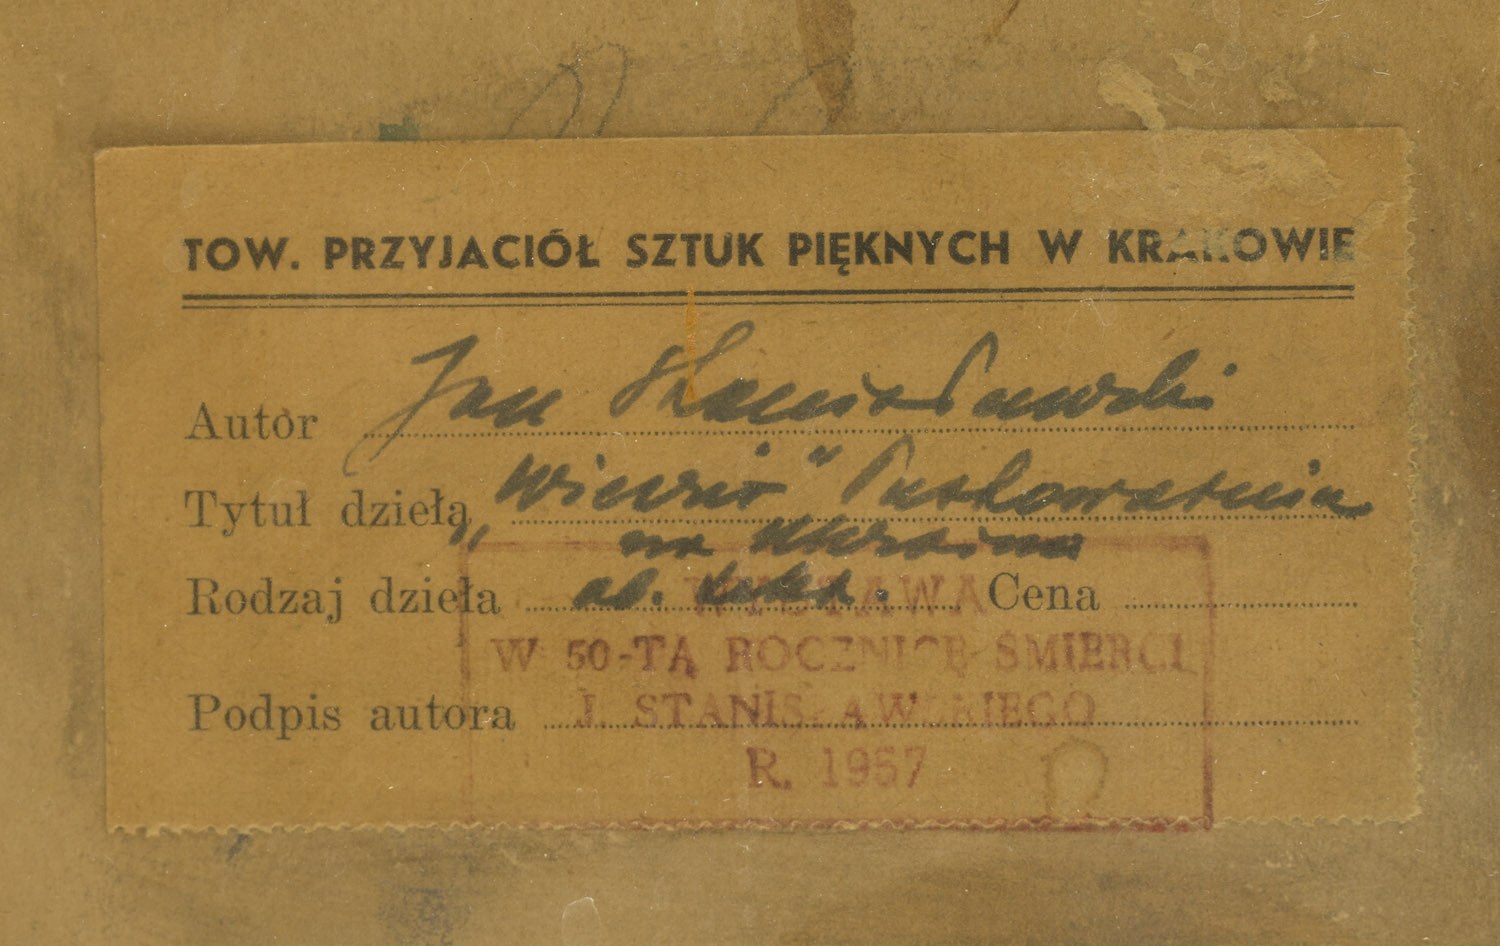 TOW. PRZYJACIÓŁ SZTUK PIĘKNYCH W KRAKOWIE
Autor Jan Stanisławski
Tytuł dzieła „Wieś"
na Ukrainie
Rodzaj dzieła ol. tekt. Cena
WYSTAWA
W 50-TĄ ROCZNICĘ ŚMIERCI
J. STANISŁAWSKIEGO
Podpis autora
R. 1957